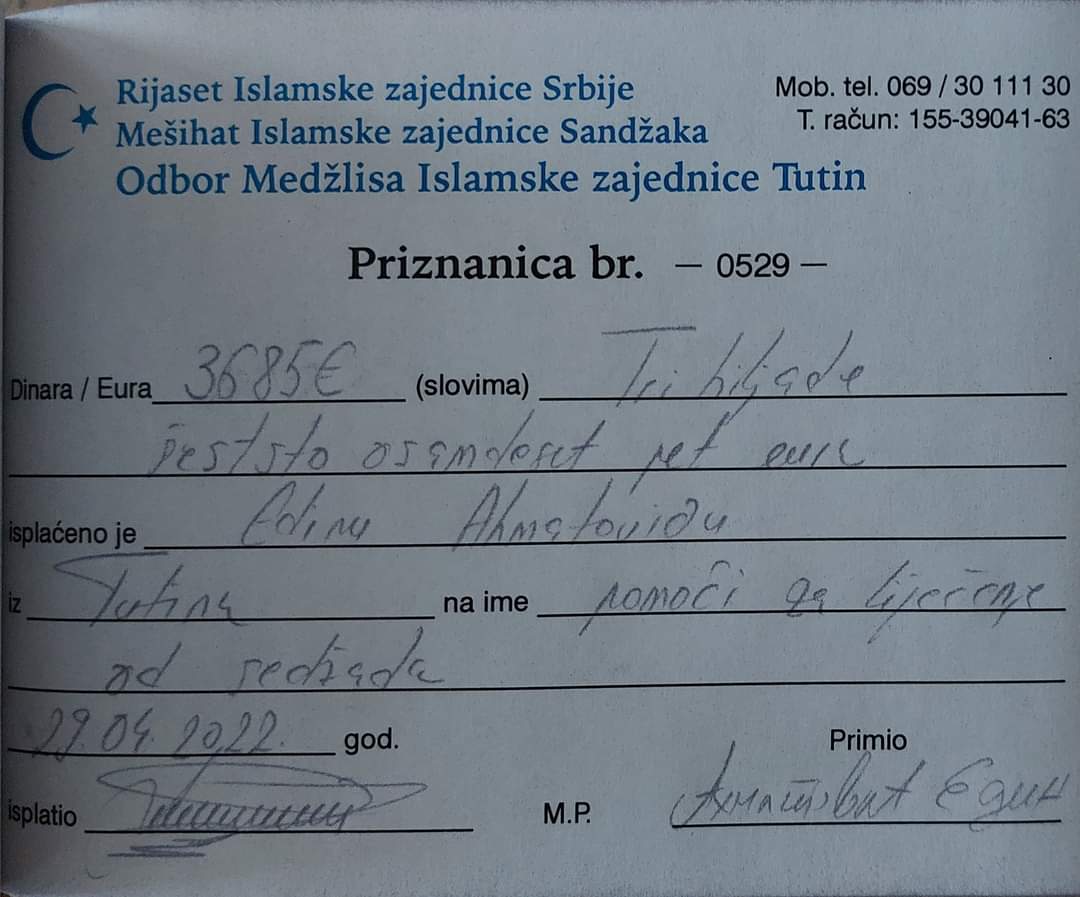 Rijaset Islamske zajednice Srbije
Mešihat Islamske zajednice Sandžaka
Odbor Medžlisa Islamske zajednice Tutin
Mob. tel. 069 / 30 111 30
T. račun: 155-39041-63
Priznanica br. – 0529 –
Dinara / Eura 3685€ (slovima) Tri hiljade
šeststo osamdeset pet eura
isplaćeno je Edinu Ahmatoviću
iz Tutina na ime pomoći za liječenje
od sedžada
29.04.2022. god.
Primio
isplatio M.P. Ахматовић Един